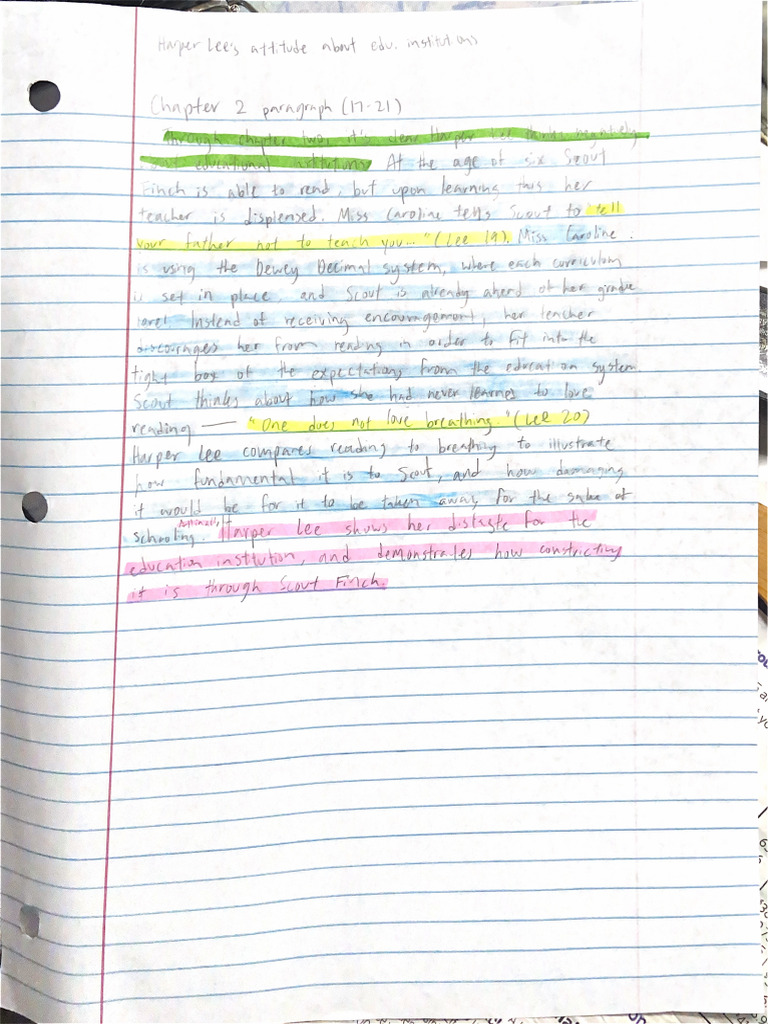 Harper Lee's attitude about edu. institutions
Chapter 2 paragraph (17-21)
Through chapter two, it's clear Harper Lee thinks negatively
about educational institutions. At the age of six Scout
Finch is able to read, but upon learning this her
teacher is displeased. Miss Caroline tells Scout to "tell
your father not to teach you..." (Lee 19). Miss Caroline
is using the Dewey Decimal system, where each curriculum
is set in place, and Scout is already ahead of her grade
level. Instead of receiving encouragement, her teacher
discourages her from reading in order to fit into the
tight box of the expectations from the education system
Scout thinks about how she had never learned to love
reading — "One does not love breathing." (Lee 20)
Harper Lee compares reading to breathing to illustrate
how fundamental it is to Scout, and how damaging
it would be for it to be taken away for the sake of
schooling. Harper Lee shows her distaste for the
education institution, and demonstrates how constricting
it is through Scout Finch.